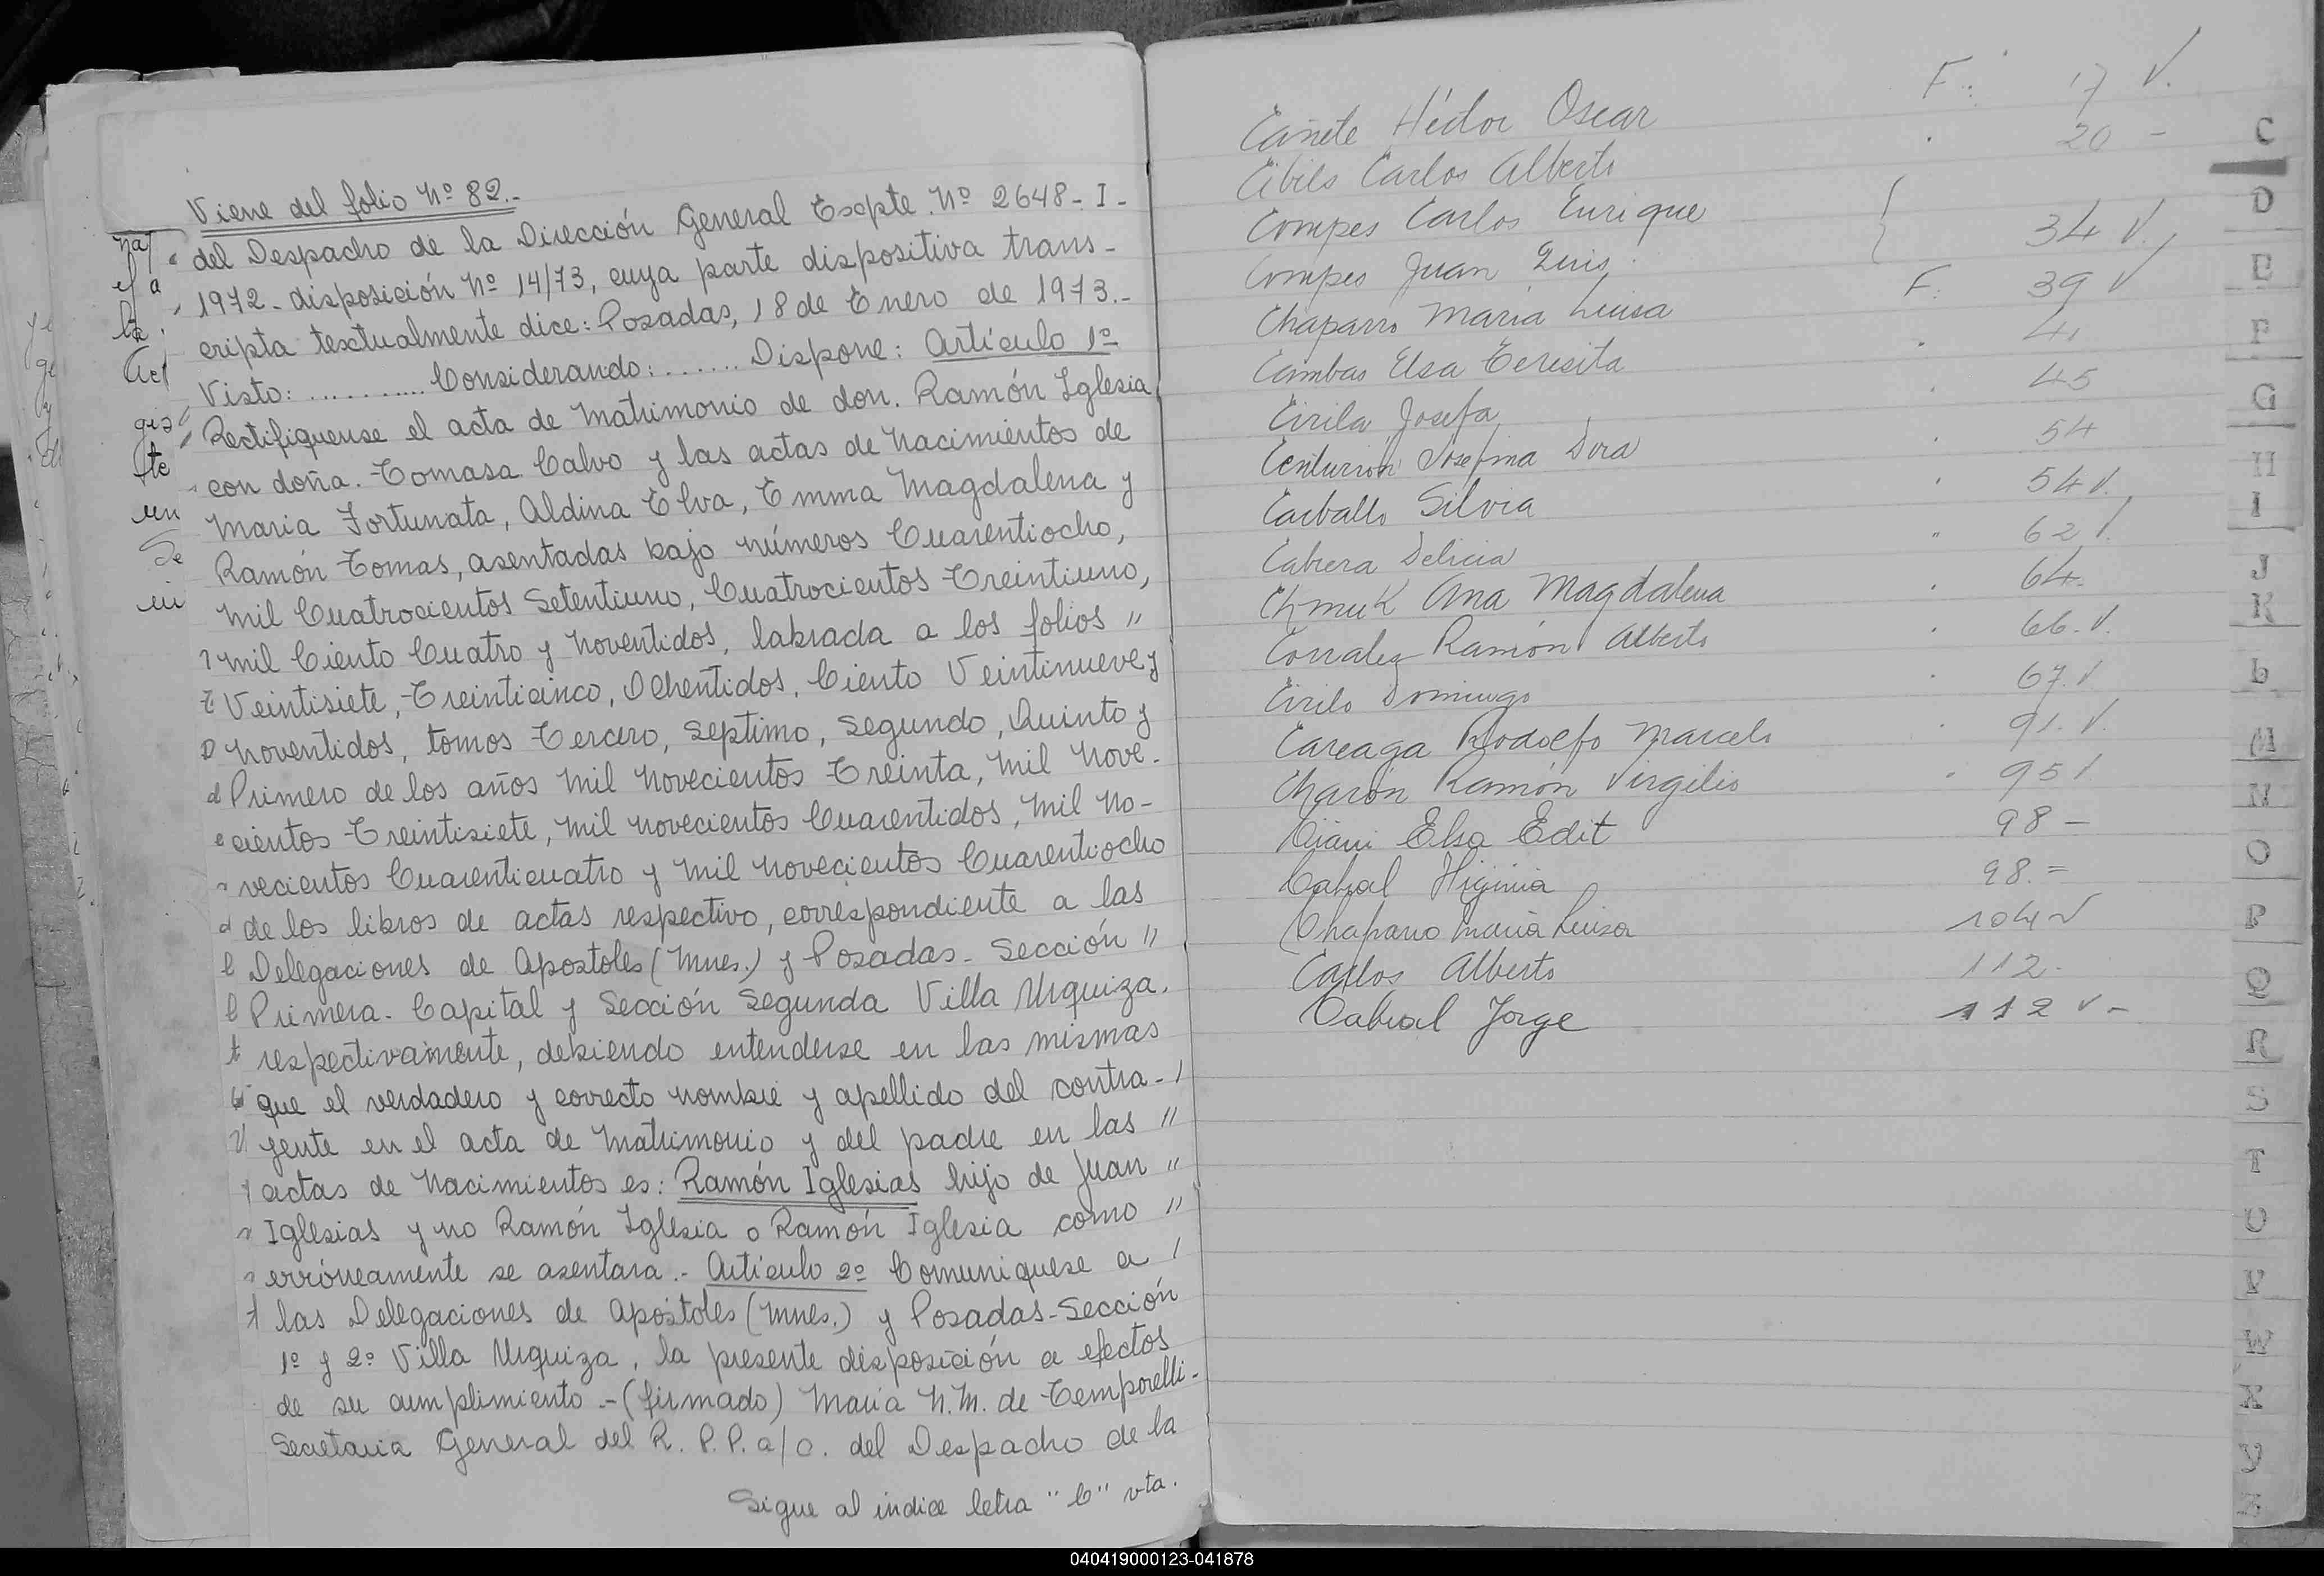 Viene del folio Nº 82.-
del Despacho de la Dirección General Exepte. Nº 2648-I-
1972- disposición Nº 14/73, cuya parte dispositiva trans-
cripta textualmente dice: Posadas, 18 de Enero de 1973.-
Visto: .......... Considerando: ...... Dispone: Artículo 1º
Rectifiquense el acta de Matrimonio de don. Ramón Iglesia
con doña. Tomasa Calvo y las actas de Nacimientos de
Maria Fortunata, Aldina Elva, Emma Magdalena y
Ramón Tomas, asentadas bajo números Cuarentiocho,
Mil Cuatrocientos Setentiuno, Cuatrocientos Treintiuno,
Mil Ciento Cuatro y Noventidos, labrada a los folios "
Veintisiete, Treinticinco, Ochentidos, Ciento Veintinueve y
Noventidos, tomos Tercero, Septimo, Segundo, Quinto y
Primero de los años Mil Novecientos Treinta, Mil Nove-
cientos Treintisiete, Mil Novecientos Cuarentidos, Mil No-
vecientos Cuarenticuatro y Mil Novecientos Cuarentiocho
de los libros de actas respectivo, correspondiente a las
Delegaciones de Apostoles (Mnes.) y Posadas- Sección "
Primera- Capital y Sección Segunda Villa Urquiza.
respectivamente, debiendo entenderse en las mismas
que el verdadero y correcto nombre y apellido del contra-/
yente en el acta de Matrimonio y del padre en las "
actas de Nacimientos es: Ramón Iglesias hijo de Juan "
Iglesias y no Ramón Iglesia o Ramón Iglesia como "
erróneamente se asentara.- Artículo 2º Comuniquese a /
las Delegaciones de Apóstoles (Mnes.) y Posadas-Sección
1º y 2º Villa Urquiza, la presente disposición a efectos
de su cumplimiento.-(firmado) Maria N.M. de Temporelli-
Secretaria General del R.P.P. a/c. del Despacho de la
Sigue al indice letra "C" vta.
Cañete Héctor Oscar F: 17 V.
Cibils Carlos Alberto 20 -
Compes Carlos Enrique
Compes Juan Luis 34 V.
Chaparro Maria Luisa F: 39 V
Cambas Elsa Teresita 41
Cirila Josefa 45
Centurión Josefina Dora 54
Carballo Silvia 54 V.
Cabrera Delicia 62 V.
Chmuk Ana Magdalena 64.
Corralez Ramón Alberto 66. V.
Cirilo Domingo 67. V.
Careaga Rodolfo Marcelo 91. V.
Charón Ramón Virgilio 95 V.
Elsa Edit 98 -
Cabral Higinia 98.=
Chaparro Maria Luisa 104 V
Carlos Alberto 112.
Cabral Jorge 112 V -
C
D
E
F
G
H
I
J
K
L
M
N
O
P
Q
R
S
T
U
V
W
X
Y
Z
040419000123-041878